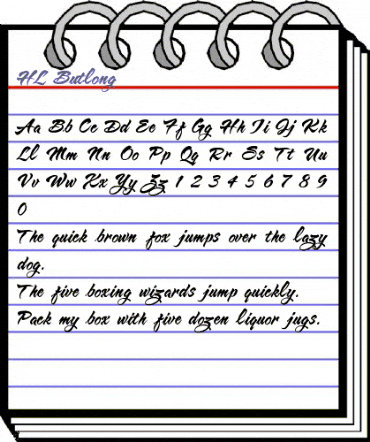 HL Butlong
Aa Bb Cc Dd Ee Ff Gg Hh Ii Jj Kk
Ll Mm Nn Oo Pp Qq Rr Ss Tt Uu
Vv Ww Xx Yy Zz 1 2 3 4 5 6 7 8 9
0
The quick brown fox jumps over the lazy
dog.
The five boxing wizards jump quickly.
Pack my box with five dozen liquor jugs.